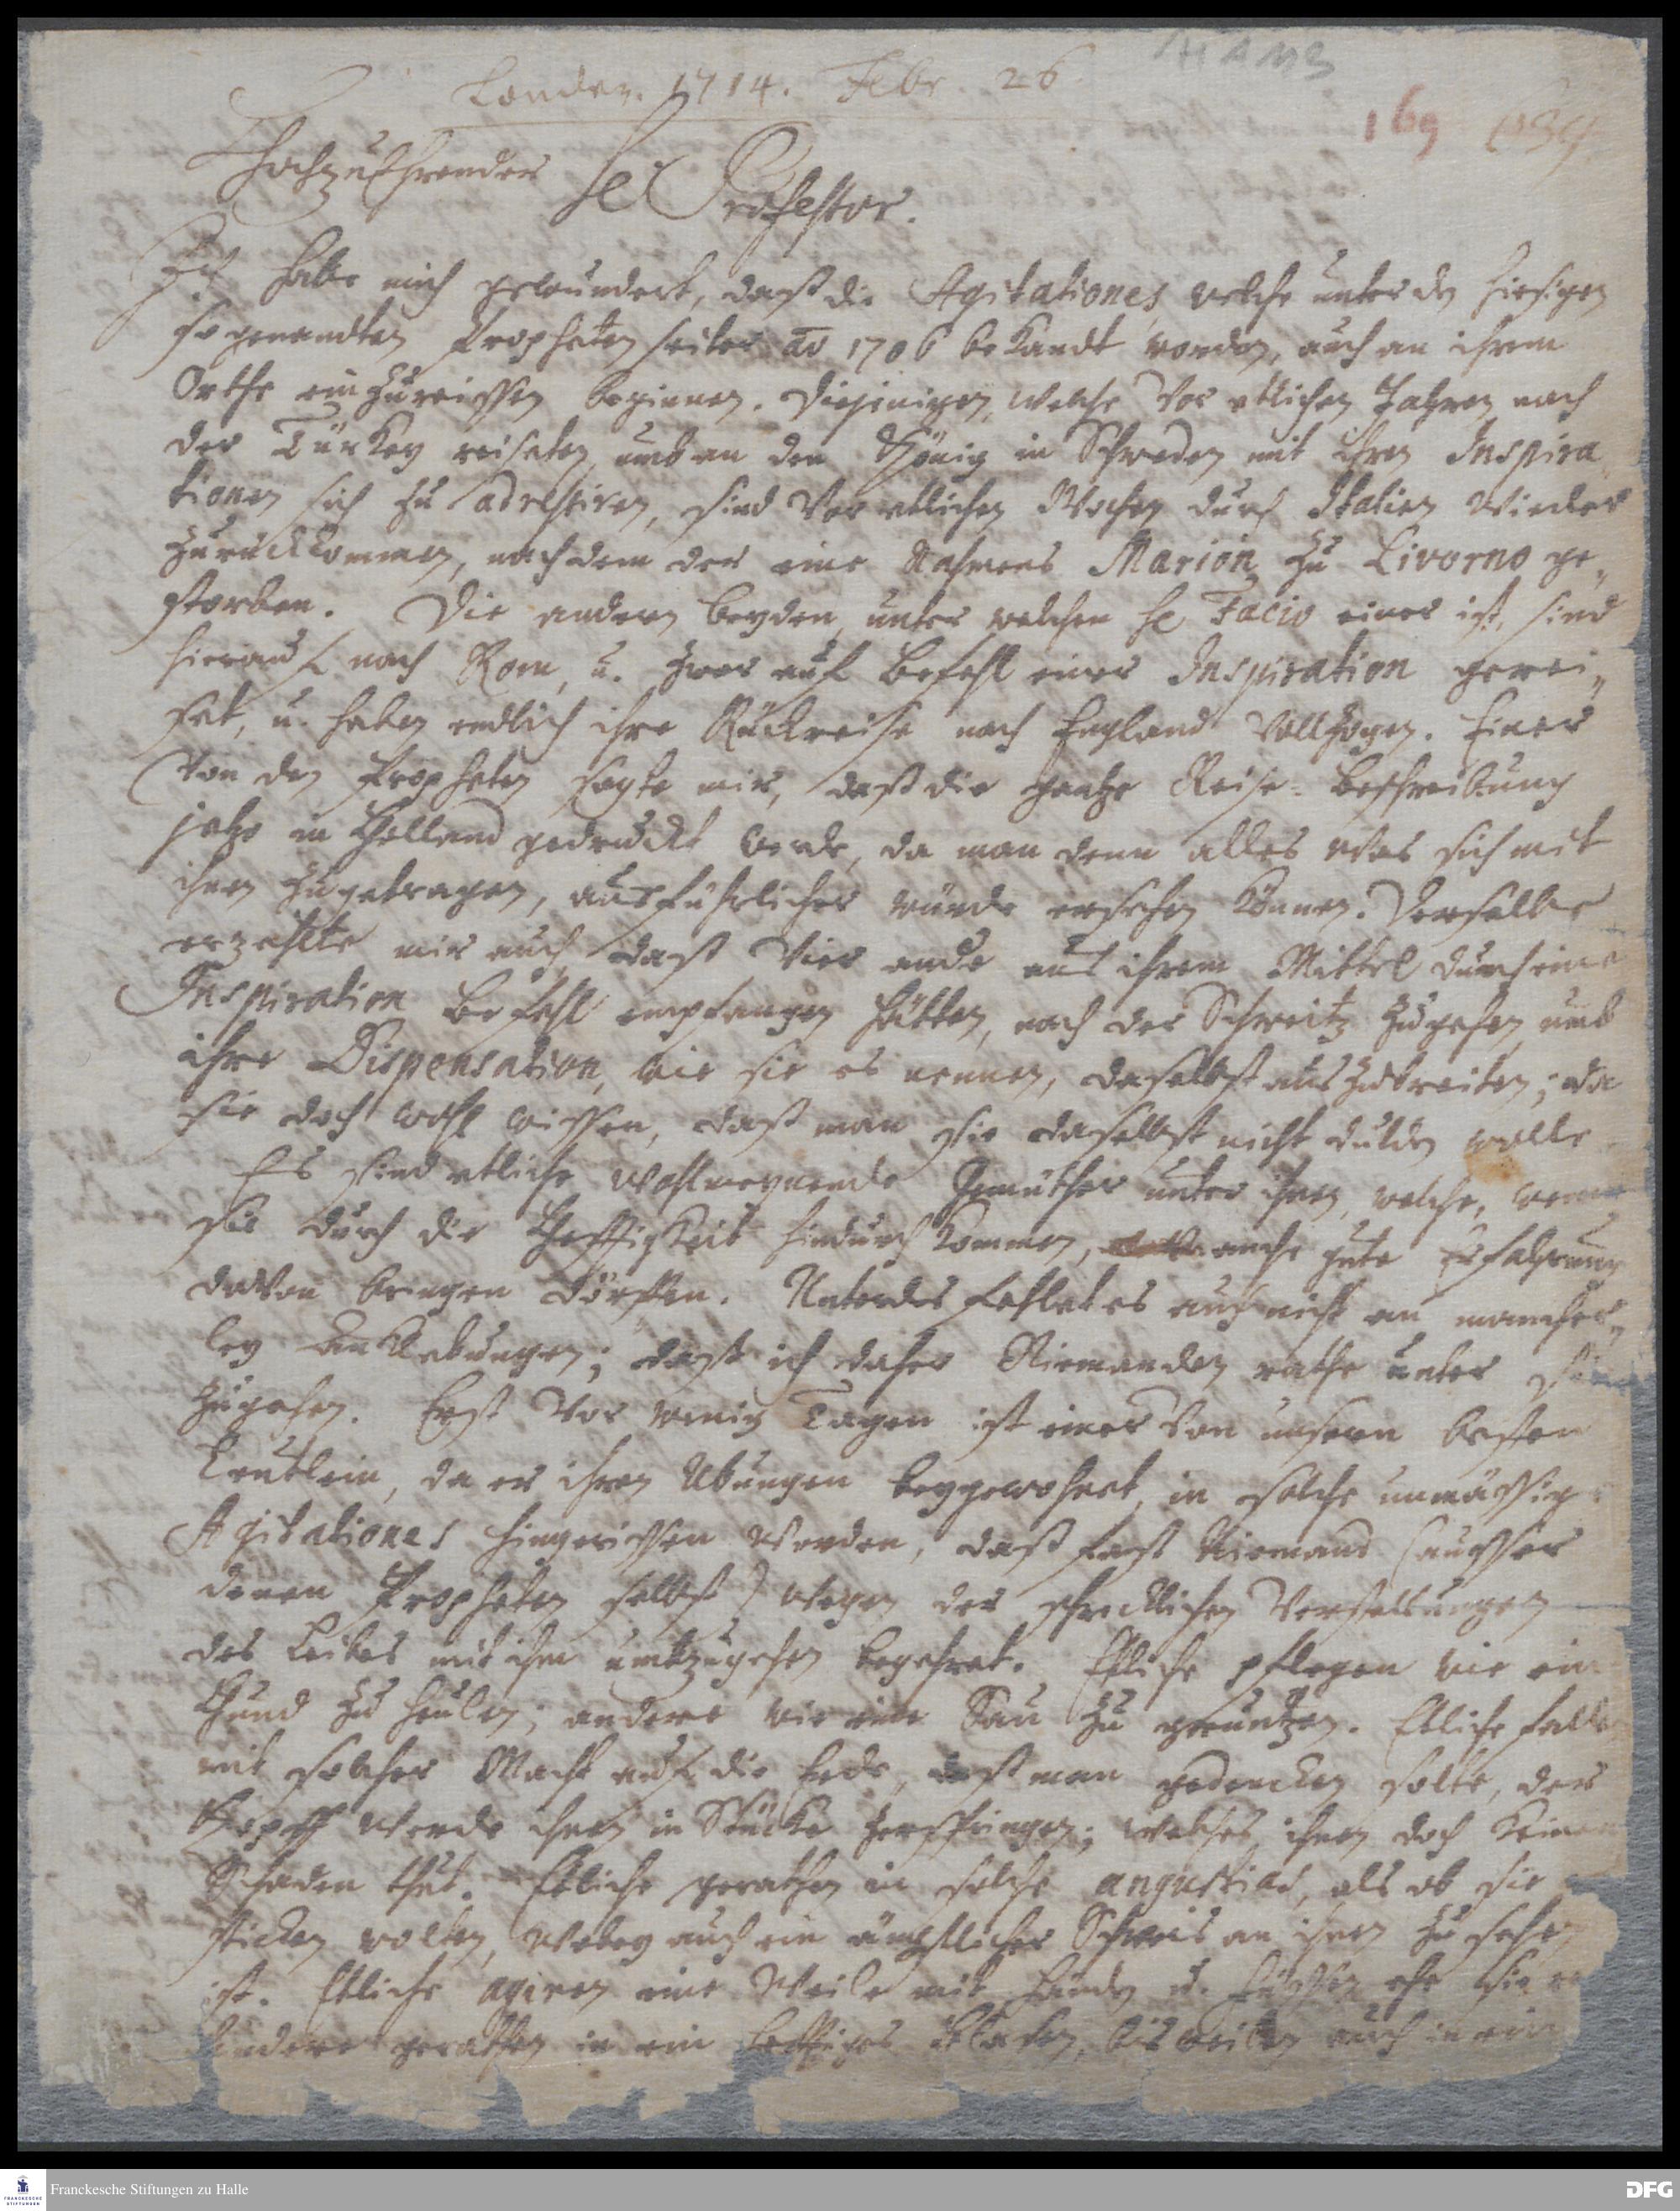 Londen. 1714. Febr. 26.
169
HochzuEhrender
He Professor.
Ich habe mich gewundert, daß die Agitationes, welche unter den hiesigen
so genandten Propheten seiter ao 1706 bekandt worden, auch an ihrem
Orthe einzureissen beginnen. Diejenigen, welche vor etlichen Jahren nach
der Türkey reiseten, umb an den König in Schweden mit ihren Inspira
tionen sich zu adressiren, sind vor etlichen Wochen durch Italien wieder
zurückkommen, nachdem der eine Nahmens Marion zu Livorno ge„
storben. Die andern beyden, unter welchen he Facio einer ist, sind
hierauf nach Rom, u. zwar auf Befehl einer Inspiration gerei„
set, u. haben endlich ihre Rückreise nach England vollzogen. Einer
von den Propheten sagte mir, daß die gantze Reise-Beschreibung
jetzo in Holland gedruckt werde, da man denn alles was sich mit
ihnen zugetragen, ausführlicher würde ersehen können. Derselbe
erzehlte mir auch, daß vier ande aus ihrem Mittel durch eine
Inspiration Befehl empfangen hätten, nach der Schweitz zu gehen, umb
ihre Dispensation, wie sie es nennen, daselbst auszubreiten; da
sie doch wohl wissen, daß man sie daselbst nicht dulden wolle
Es sind etliche wohlmeynende Gemüther unter ihnen, welche, wenn
sie durch die Hefftigkeit hindurch kommen, manche gute Erfahrung
davon bringen dörfften. Unterdes fehlet es auch nicht an mancher„
ley daß ich daher Niemanden rathe unter sie
zu gehen. Erst vor wenig Tagen ist einer von unsern besten
Leutlein, da er ihren Ubungen beygewohnet, in solche unmässige
Agitationes hingerissen worden, daß fast Niemand (ausser
denen Propheten selbst) wegen der schrecklichen Verstellungen
des Leibes mit ihm umbzugehen begehret. Etliche pflegen wie ein
Hund zu heulen; andere wie eine Sau zu gruntzen. Etliche falle
mit solcher Macht auf die Erde, daß man gedencken solte, der
Kopff werde ihnen in Stücke zerspringen; welches ihnen doch keinen
Schaden thut. Etliche gerathen in solche angustias, als ob sie
sticken wolten, wobey auch ein ängstlicher Schweis an ihnen zu sehen
ist. Etliche agiren eine Weile mit Händen u. Füssen, ehe sie
Andere gerathen in ein hefftiges bisweilen auch in ein
Franckesche Stiftungen zu Halle
FRANCKESCHE
STIFTUNGEN
DFG